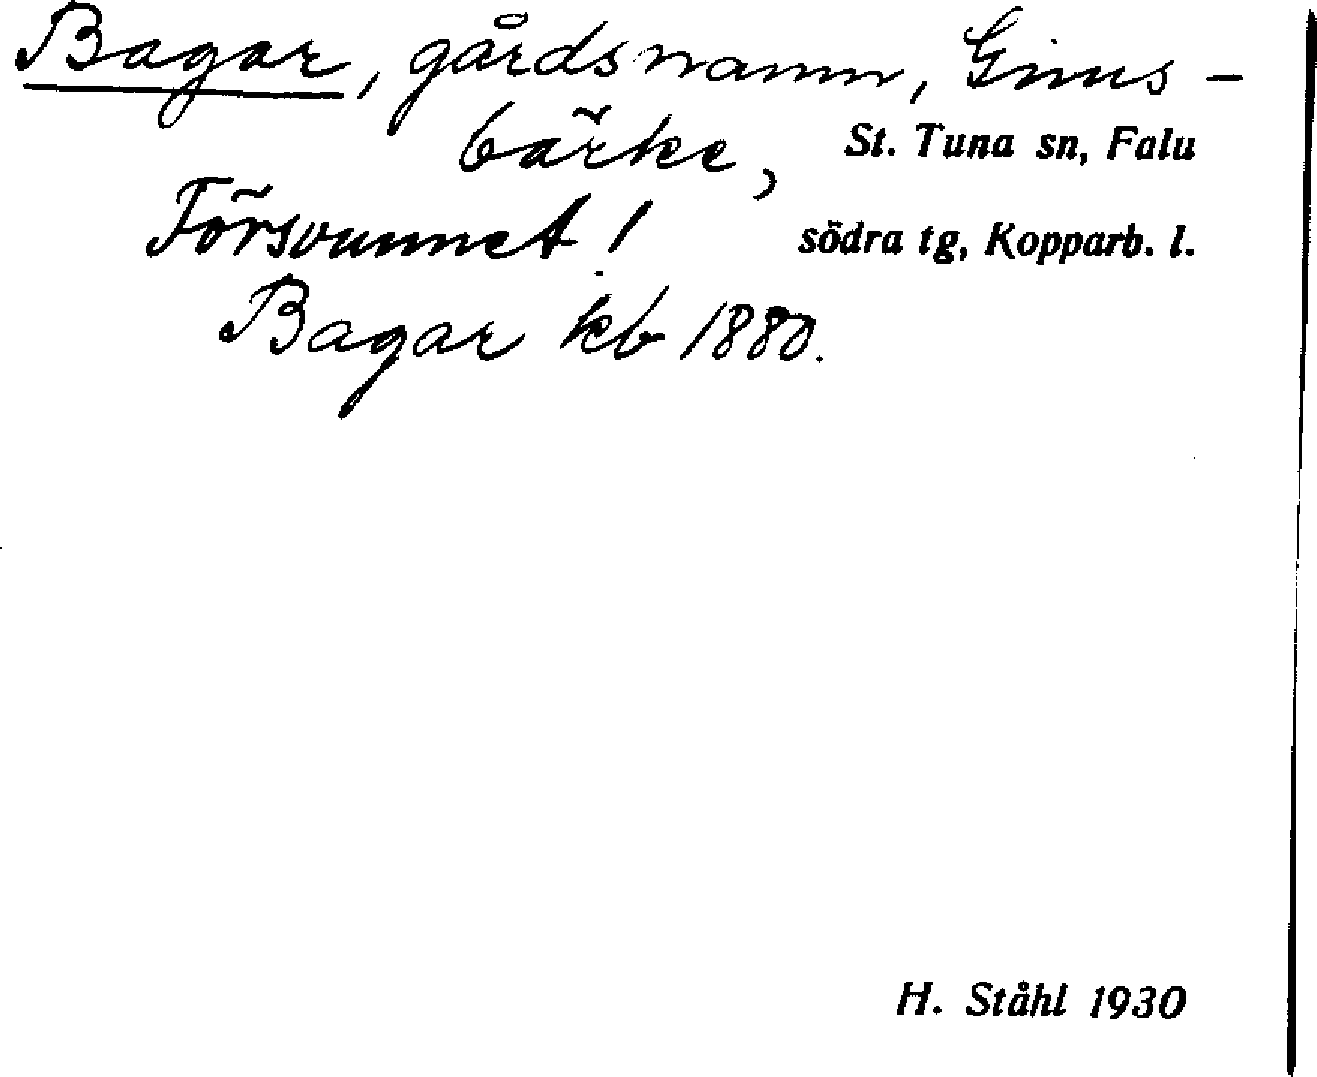 Bagar, gårdsnamn, Ginns-
bärke, St. Tuna sn, Falu
Försvunnet! södra tg, Kopparb. l.
Bagar kb 1880.
H. Ståhl 1930